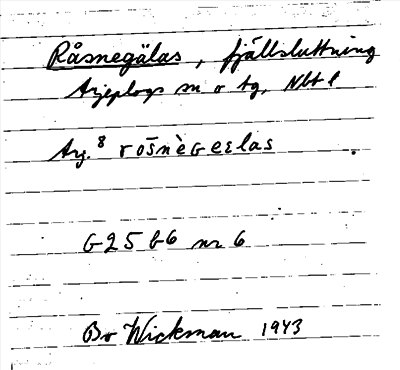 Råsnegälas, fjällsluttning
Arjeplogs sn o tg, Nbt l
Arj. 8 rošnè̀ɢeɛlas
G25 b6 nr 6
Bo Wickman 1943